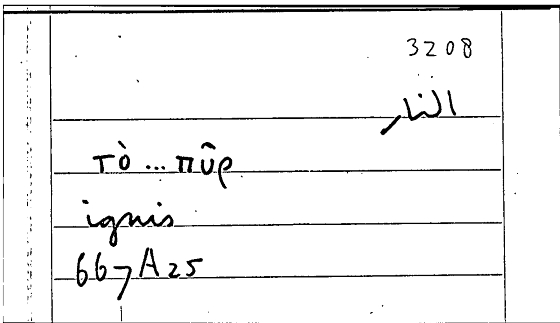 3208
النار
τὸ ... πῦρ
ignis
667A25